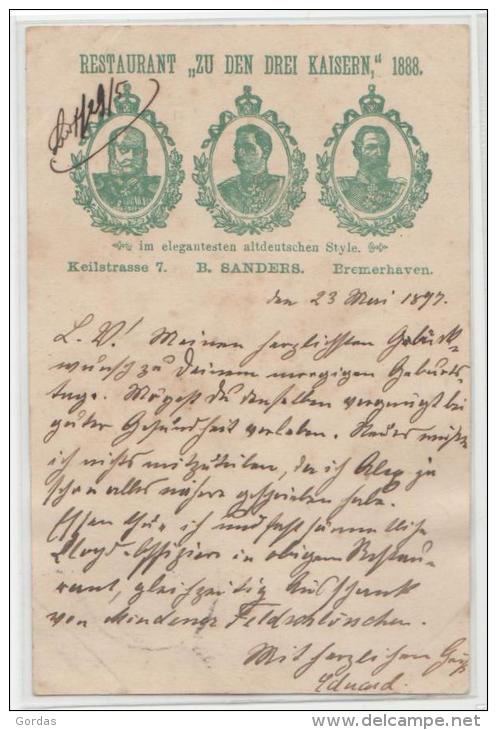 RESTAURANT „ZU DEN DREI KAISERN,“ 1888.
29/5
im elegantesten altdeutschen Style.
Keilstrasse 7. B. SANDERS. Bremerhaven.
den 23 Mai 1897.
L. V! Meinen herzlichsten Glück-
wunsch zu Deinem morgigen Geburts-
tage. Mögest Du denselben vergnügt bei
guter Gesundheit verleben. Neues
ich nichts mitzuteilen, da ich Alex ja
schon alles nähere geschrieben habe.
Essen thue ich und fast sämmtliche
Lloyd-Offiziere in obigem Restau-
rant, gleichzeitig Ausschank
von Mindener Feldschlösschen.
Mit herzlichem Gruß
Eduard.
Gordas
delcampe.net